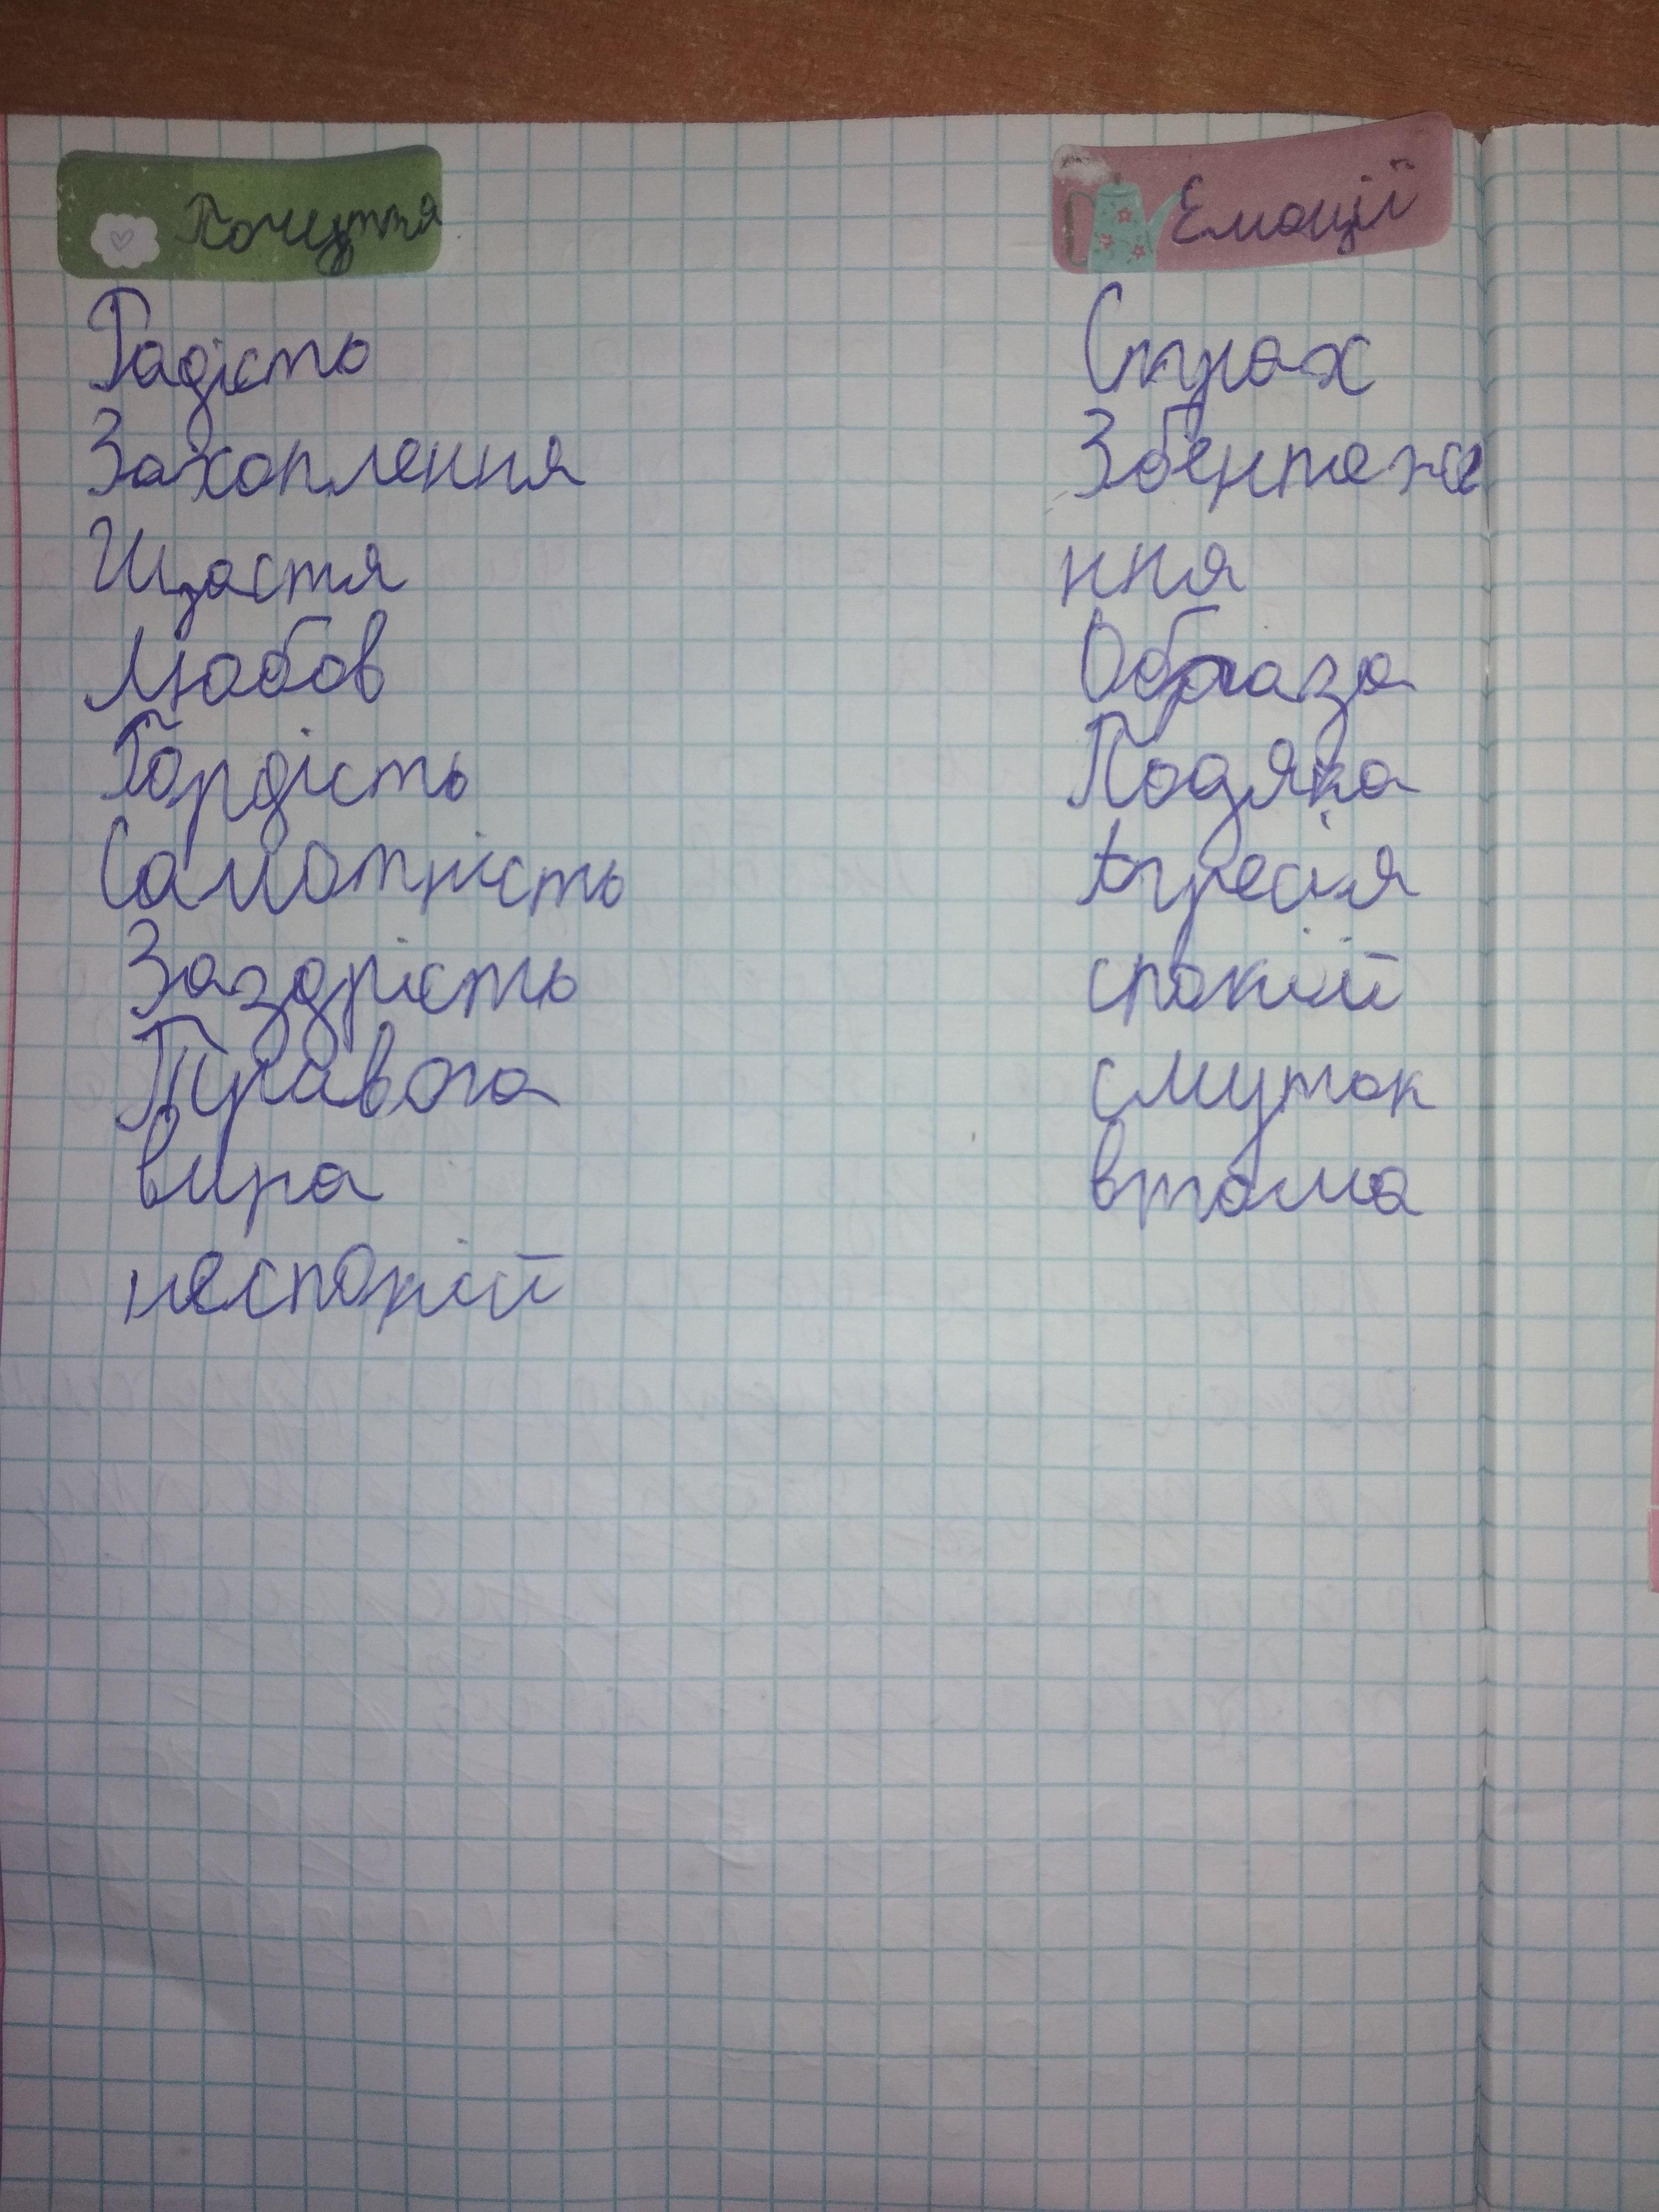 Почуття
Радість
Захоплення
Щастя
Любов
Гордість
Самотність
Заздрість
Тривога
віра
неспокій
Емоції
Страх
Збентеже
ння
Образа
Подяка
Агресія
спокій
смуток
втома